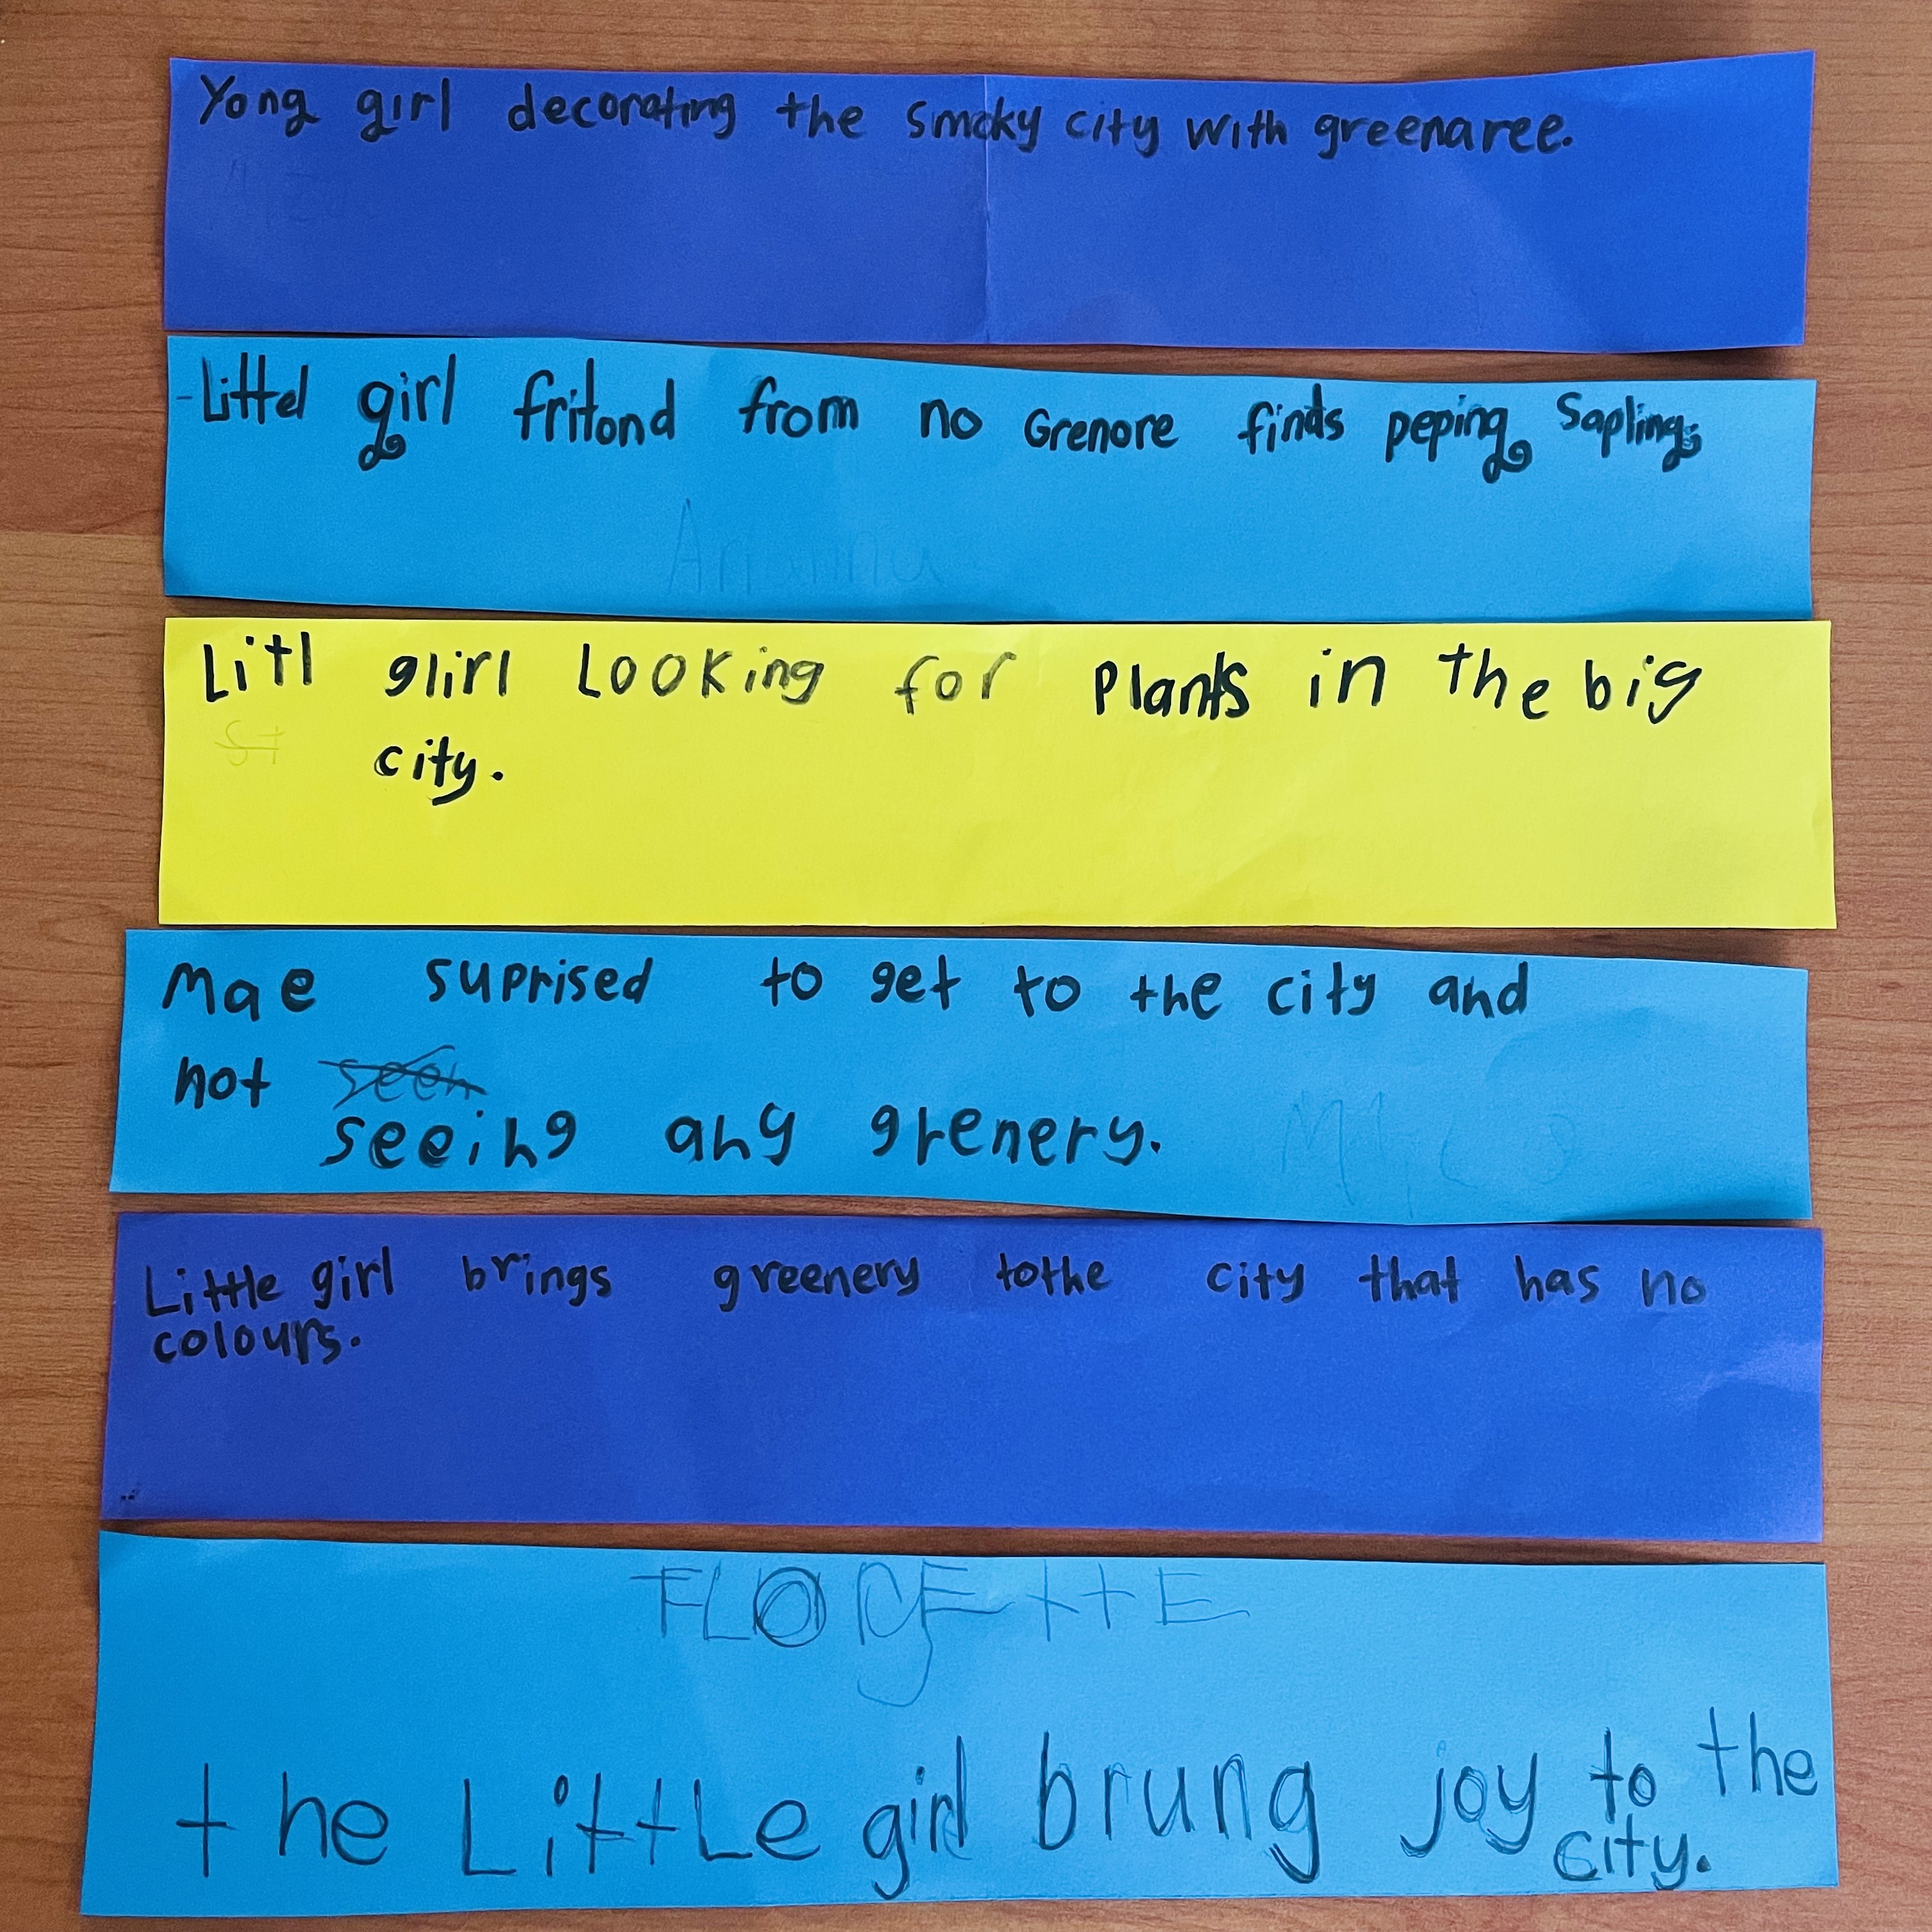 Yong girl decorating the smoky city with greenaree.
-Littel girl fritond from no Grenore finds peping sapling.
Arianna
Litl glirl Looking for Plants in the big
city.
Mae suprised to get to the city and
not seen
seeing any grenery.
Little girl brings greenery tothe city that has no
colours.
FLORETTE
the LittLe girl brung joy to the
city.